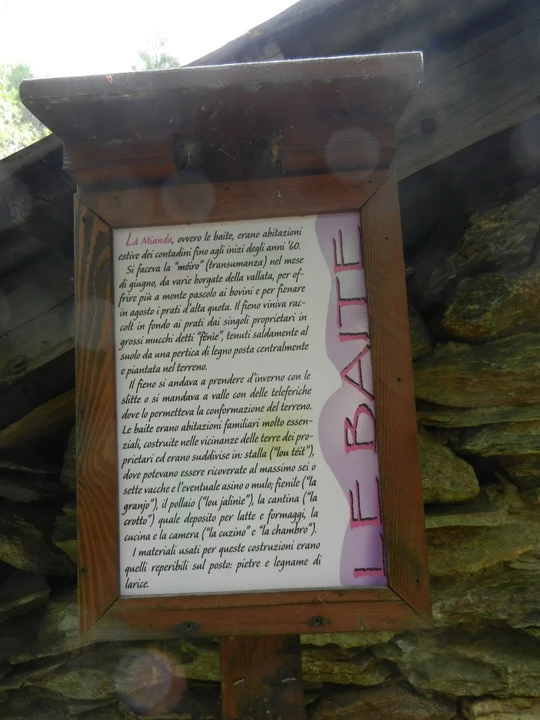 Là Mianda, ovvero le baite, erano abitazioni
estive dei contadini fino agli inizi degli anni '60.
Si faceva la "méiro" (transumanza) nel mese
di giugno, da varie borgate della vallata, per of-
frire più a monte pascolo ai bovini e per fienare
in agosto i prati d'alta quota. Il fieno viniva rac-
colt in fondo ai prati dai singoli proprietari in
grossi mucchi detti "fënìe", tenuti saldamente al
suolo da una pertica di legno posta centralmente
e piantata nel terreno.
Il fieno si andava a prendere d'inverno con le
slitte o si mandava a valle con delle teleferiche
dove lo permetteva la conformazione del terreno.
Le baite erano abitazioni familiari molto essen-
ziali, costruite nelle vicinanze delle terre dei pro-
prietari ed erano suddivise in: stalla ("lou téit"),
dove potevano essere ricoverate al massimo sei o
sette vacche e l'eventuale asino o mulo; fienile ("la
granjo"), il pollaio ("lou jalinìe"), la cantina ("la
crotto") quale deposito per latte e formaggi, la
cucina e la camera ("la cuzino" e "la chambro").
I materiali usati per queste costruzioni erano
quelli reperibili sul posto: pietre e legname di
larice.
LE BAITE